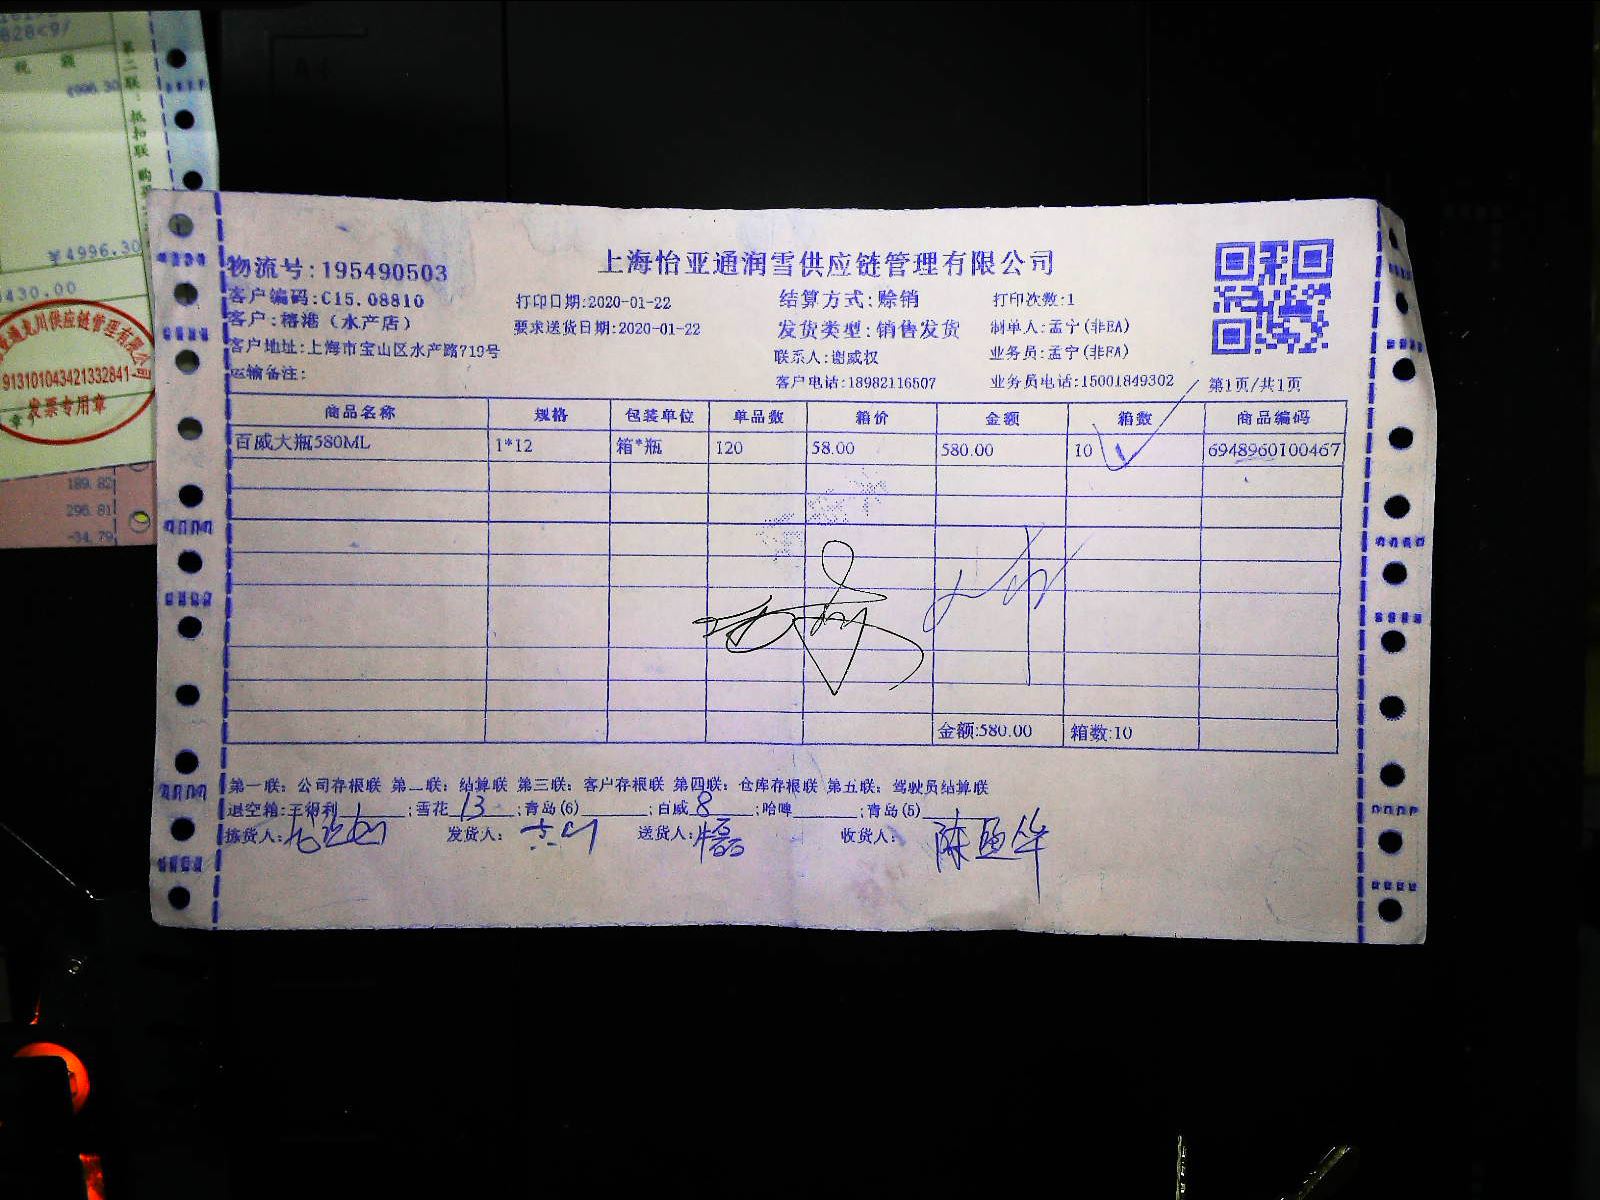 828<9/
税 额
第二联:抵扣联 购
¥4996.30
430.00
供应链管理有限公司
913101043421332841
发票专用章
189.82
296.81
-34.79
上海怡亚通润雪供应链管理有限公司
物流号:195490503
客户编码:C15.08810 打印日期:2020-01-22 结算方式:赊销 打印次数:1
客户:榕港(水产店) 要求送货日期:2020-01-22 发货类型:销售发货 制单人:孟宁(非EA)
客户地址:上海市宝山区水产路719号 联系人:谢威权 业务员:孟宁(非EA)
运输备注: 客户电话:18982116507 业务员电话:15001849302 第1页/共1页
商品名称 规格 包装单位 单品数 箱价 金额 箱数 商品编码
百威大瓶580ML 1*12 箱*瓶 120 58.00 580.00 10 6948960100467
金额:580.00 箱数:10
第一联: 公司存根联 第二联: 结算联 第三联: 客户存根联 第四联: 仓库存根联 第五联: 驾驶员结算联
退空箱:王得利 1 ;雪花 13 ;青岛(6) ;百威 8 ;哈啤 ;青岛(5)
拣货人: 发货人: 送货人: 收货人: